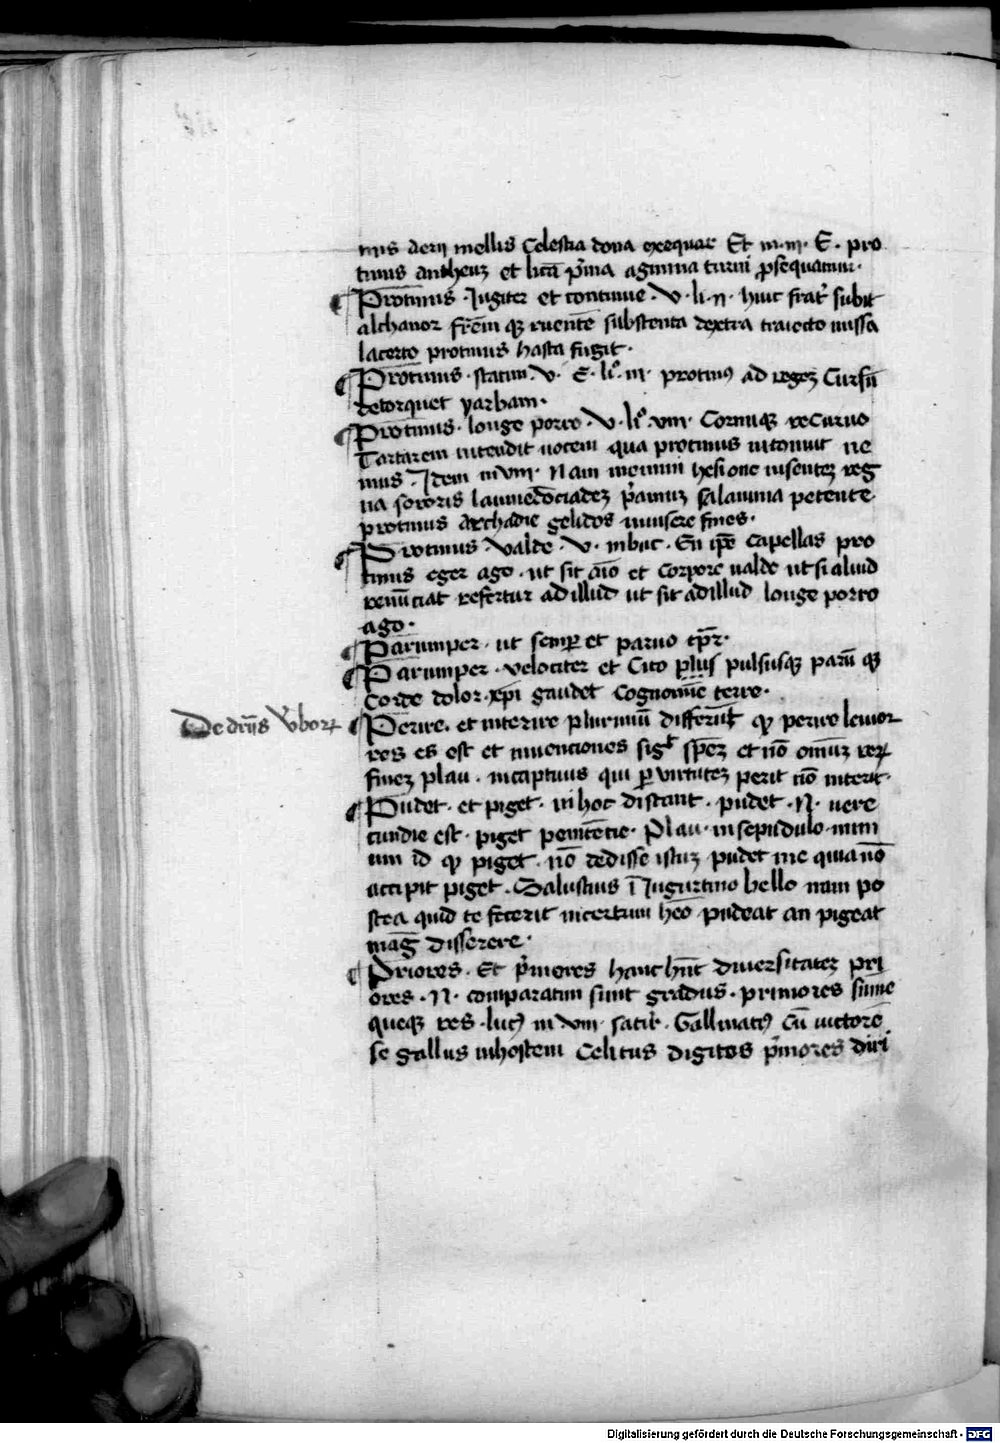 nus aerij mellis Celestia dona exequar Et in iii E. pro
tinus antheuz et lucā pͥma agmina turni ꝓsequitur.
Protinus. Jugiter et continue. V. li. x. huic frat͛ subit
alchanor fr̄em qꝫ ruentē substentā dextra traiecto missa
lacerto protinus hasta fugit.
Protinus. statim. V. E. li.º iiij protinꝰ ad regeꝫ Cursū
detorquet yarbam.
Protinus. longe porro. V. li.º viij. Cornuqꝫ recuruo
Tartaream intendit uocem qua protinus intonuit ne
mus. Idem in viij. Nam memini hesione uisenteꝫ reg
na sororis laumedōciadeꝫ pͥamuꝫ salamina petentē
protinus archadie gelidos inuisere fines.
Protinus. Valde. V. in buc. En ip̄e capellas pro
tinus eger ago. ut sit aīo et corpore ualde ut si aliud
renūciat refertur ad illud ut sit ad illud longe porro
ago.
Parumper. ut semp̱ et paruo tp̄r.
Parumper. velociter et Cito plus pulsusqꝫ parū qꝫ
corde dolor xp̄i gaudet cognomīe terre.
De dr̄iis v̄borꝝ
Perire. et interire plurimū differūt qꝫ perire leuior
res est et inuenciones sigᵗ sp̄eꝫ et nō omīuꝫ rerꝝ
fineꝫ plau. in captiuis qui ꝑ virtuteꝫ perit nō interit.
Pudet. et piget. in hoc distant. pudet. N. uere
cundie est. piget penitētie. Plau. in sepudulo. mim
um id qꝫ piget. nō dedisse istuꝫ pudet me quia nō
accipit piget. Salustius ī Jugurtino bello nam po
stea quid te fecerit incertum hēo pudeat an pigeat
maḡ disserere.
Priores. Et pͥmores hanc hn̄t diuersitateꝫ pri
ores. N. comparatim sunt gradus. primores sūme
queqꝫ res. lucꝰ in viij. satir. Gallinatꝰ Cū uictorē
se gallus in hostem Celitus digitos pͥmores diri
Digitalisierung gefördert durch die Deutsche Forschungsgemeinschaft - DFG